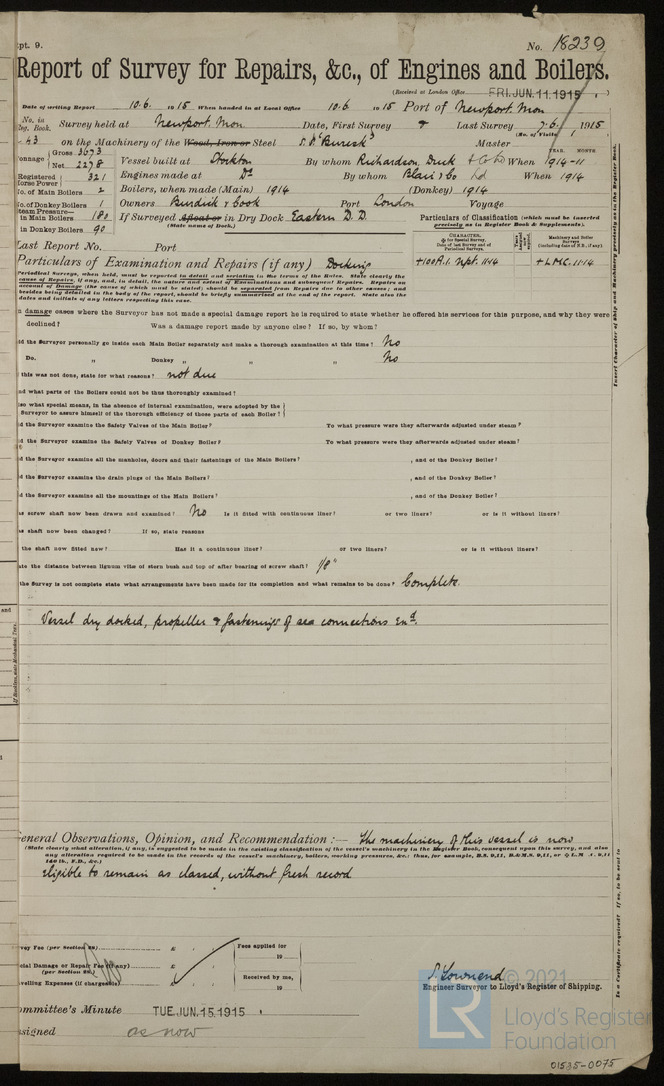 pt. 9.
No. 18239
Report of Survey for Repairs, &c., of Engines and Boilers.
(Received at London Office FRI. JUN. 11. 1915 )
Date of writing Report 10.6. 1915 When handed in at Local Office 10.6 1915 Port of Newport. Mon
No. in Reg. Book. Survey held at Newport. Mon Date, First Survey & Last Survey 7.6. 1915
(No. of Visits 1 )
43 on the Machinery of the Wood, Iron or Steel S.S. "Burick" Master
Tonnage Gross 3073 Net 2278 Vessel built at Stockton By whom Richardson, Duck & Co Ld When YEAR. MONTH. 1914-11
Registered Horse Power 321 Engines made at Do By whom Blair & Co Ld When 1914
No. of Main Boilers 2 Boilers, when made (Main) 1914 (Donkey) 1914
No. of Donkey Boilers 1 Owners Burdick & Cook Port London Voyage
Steam Pressure— in Main Boilers 180 If Surveyed Afloat or in Dry Dock Eastern D. D.
(State name of Dock.)
in Donkey Boilers 90
Particulars of Classification (which must be inserted precisely as in Register Book & Supplements).
Last Report No. Port
CHARACTER,
Machinery and Boiler Surveys (including date of N.B., if any).
Particulars of Examination and Repairs (if any) Docking
+100A.1. Nept. 11.14 + L.M.C. 11.14
Periodical Surveys, when held, must be reported in detail and seriatim in the terms of the Rules. State clearly the
cause of Repairs, if any, and, in detail, the nature and extent of Examinations and subsequent Repairs. Repairs on
account of Damage (the cause of which must be stated) should be separated from Repairs due to other causes; and
besides being detailed in the body of the report, should be briefly summarised at the end of the report. State also the
dates and initials of any letters respecting this case.
In damage cases where the Surveyor has not made a special damage report he is required to state whether he offered his services for this purpose, and why they were
declined? Was a damage report made by anyone else? If so, by whom?
did the Surveyor personally go inside each Main Boiler separately and make a thorough examination at this time? No
Do. " Donkey " " " No
this was not done, state for what reasons? not due
nd what parts of the Boilers could not be thus thoroughly examined?
lso what special means, in the absence of internal examination, were adopted by the
Surveyor to assure himself of the thorough efficiency of those parts of each Boiler?
id the Surveyor examine the Safety Valves of the Main Boiler? To what pressure were they afterwards adjusted under steam?
id the Surveyor examine the Safety Valves of Donkey Boiler? To what pressure were they afterwards adjusted under steam?
id the Surveyor examine all the manholes, doors and their fastenings of the Main Boilers? , and of the Donkey Boiler?
id the Surveyor examine the drain plugs of the Main Boilers? , and of the Donkey Boiler?
id the Surveyor examine all the mountings of the Main Boilers? , and of the Donkey Boiler?
as screw shaft now been drawn and examined? No Is it fitted with continuous liner? or two liners? or is it without liners?
as shaft now been changed? If so, state reasons
the shaft now fitted new? Has it a continuous liner? or two liners? or is it without liners?
ate the distance between lignum vitæ of stern bush and top of after bearing of screw shaft? 1/8"
the Survey is not complete state what arrangements have been made for its completion and what remains to be done? Complete.
Vessel dry docked, propeller & fastenings of sea connections Exd.
General Observations, Opinion, and Recommendation :— The machinery of this vessel is now
(State clearly what alteration, if any, is suggested to be made in the existing classification of the vessel's machinery in the Register Book, consequent upon this survey, and also
any alteration required to be made in the records of the vessel's machinery, boilers, working pressures, &c.: thus, for example, B.S. 9,11, B.&M.S. 9,11, or
140 lb., F.D., &c.)
eligible to remain as classed, without fresh record
Survey Fee (per Section 29) £ Fees applied for
19
Special Damage or Repair Fee (if any) £
(per Section 29.)
Travelling Expenses (if chargeable) £ Received by me,
19
S. Townend
Engineer Surveyor to Lloyd's Register of Shipping.
Committee's Minute TUE. JUN. 15. 1915
Assigned as now
© 2021
LR
Lloyd's Register
Foundation
01535-0075